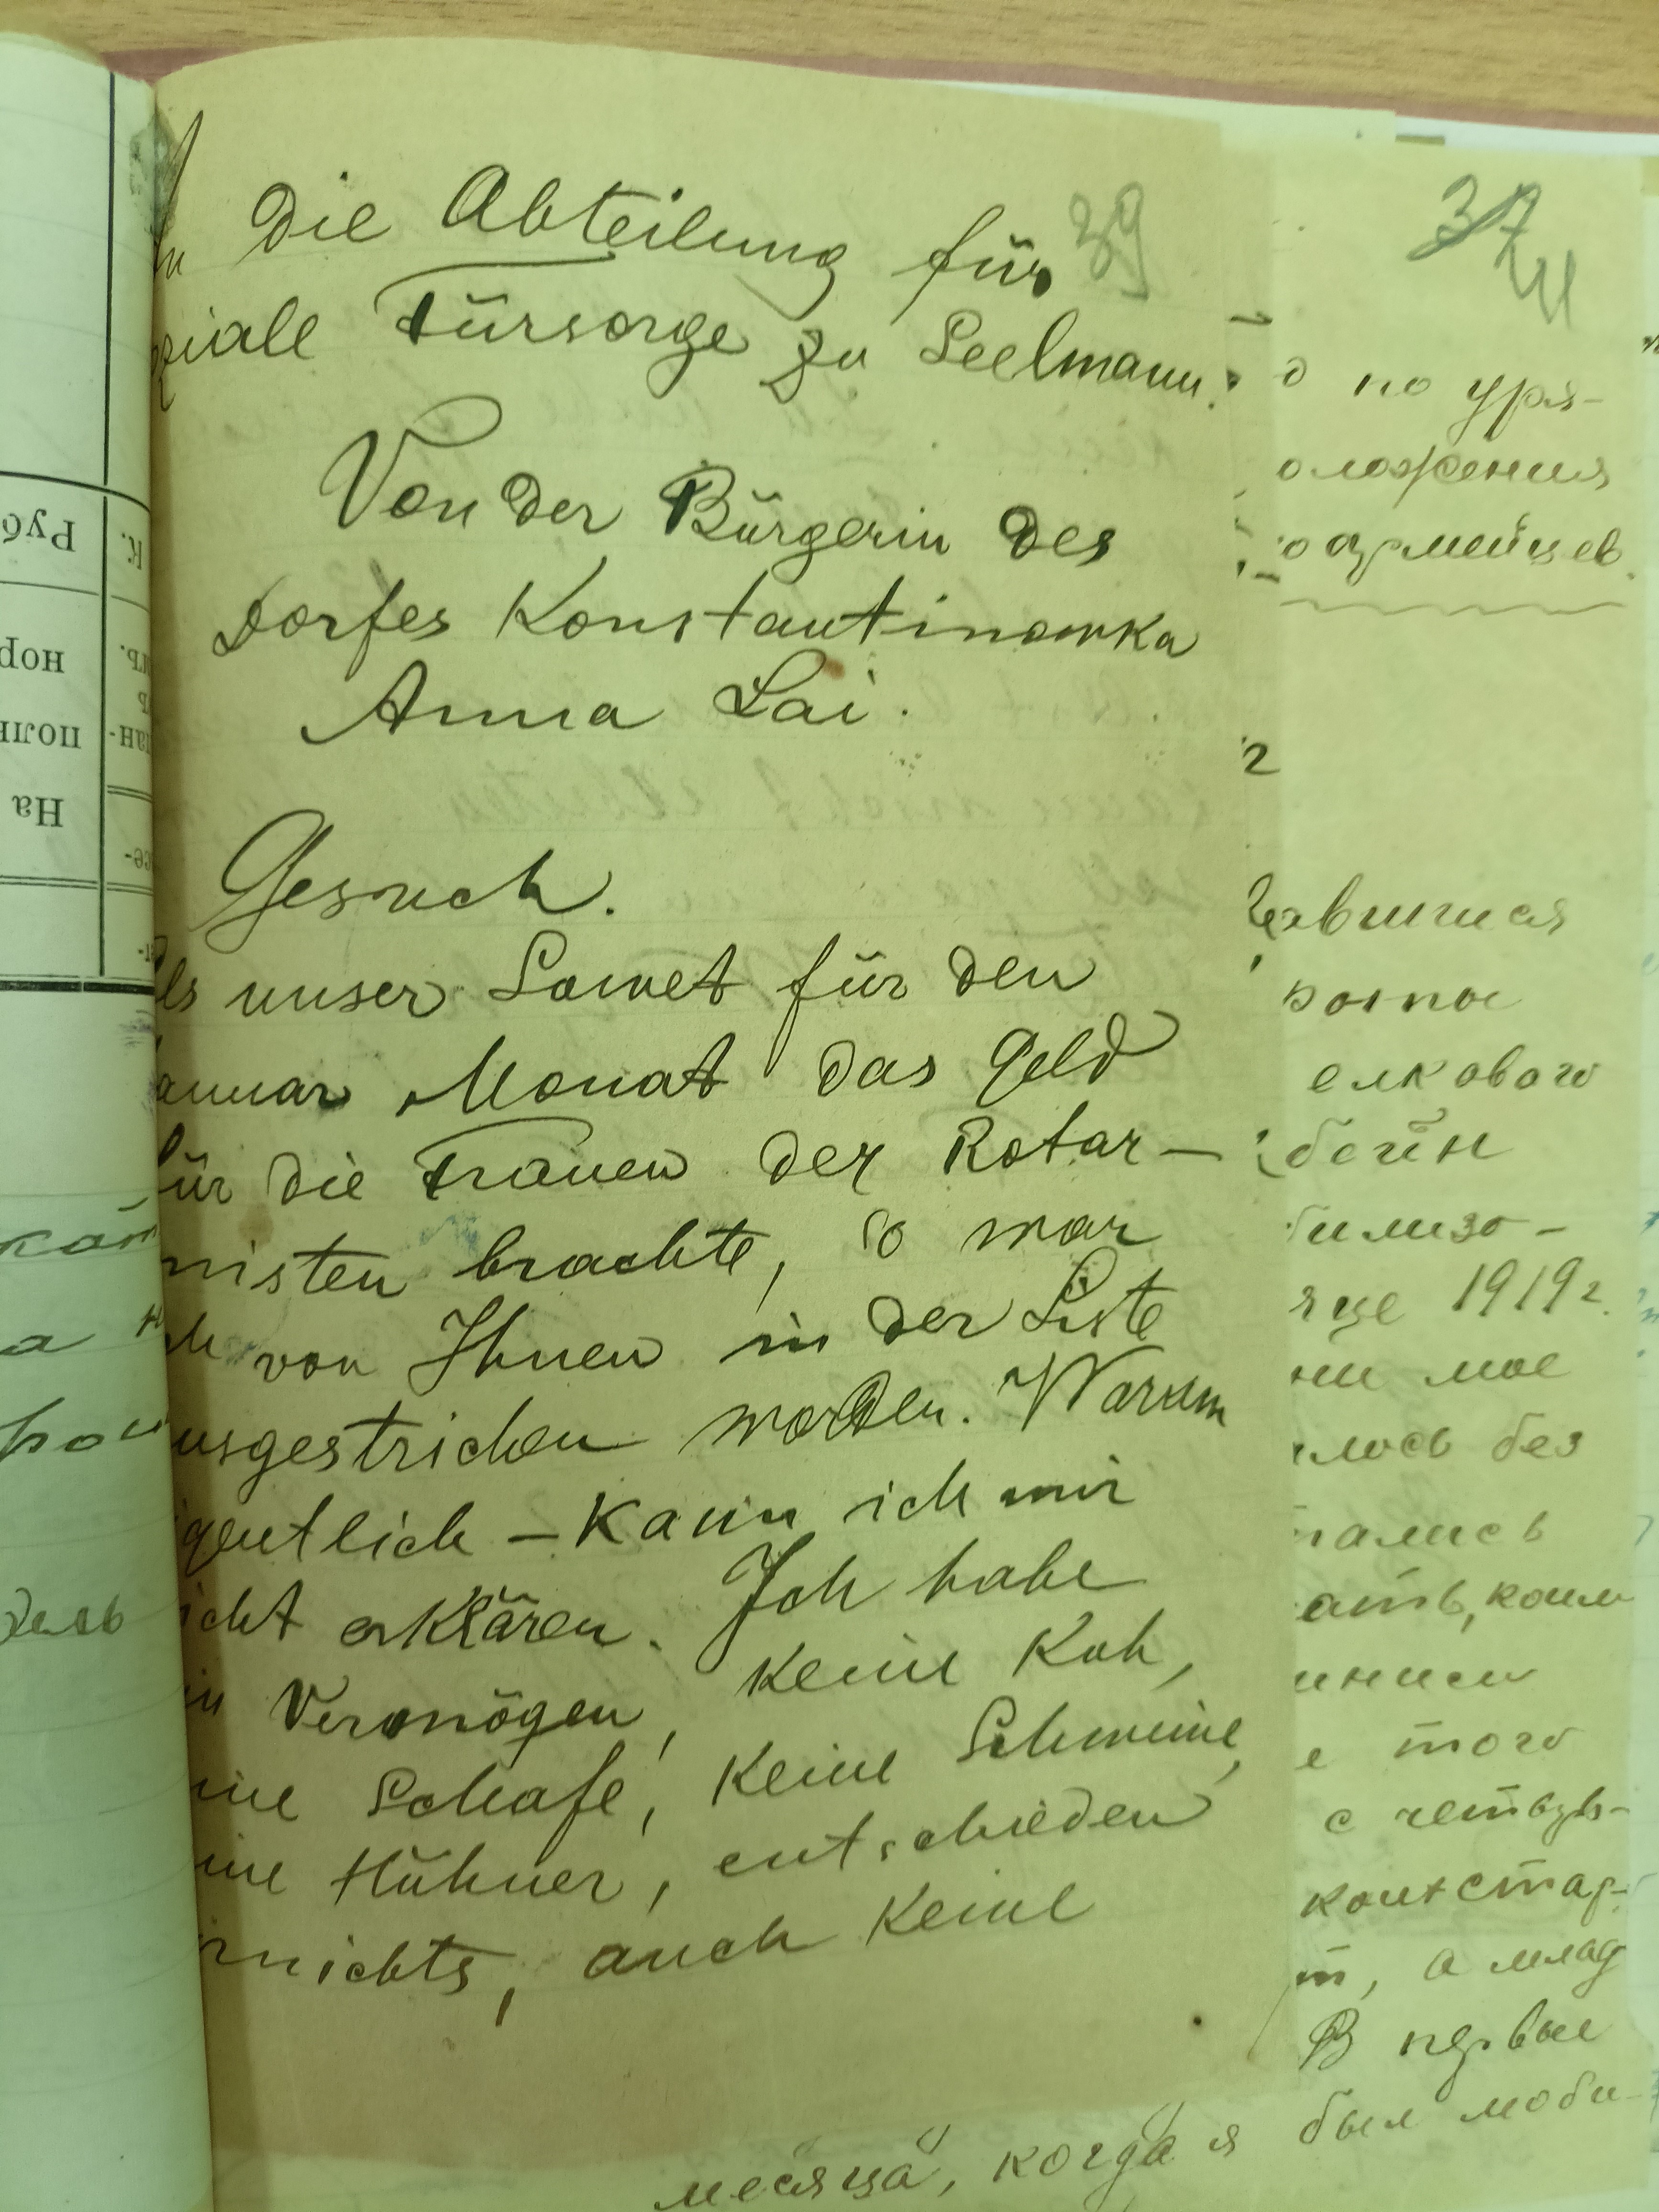 die Abteilung für
39
ziale Fürsorge zu Seelmann.
Von der Bürgerin des
Dorfes Konstantinowka
Anna Lai.
Gesuch.
ls unser Sowet für den
anuar Monat das Geld
für die Frauen der Rotar-
misten brachte, so war
ch von Ihnen in der Liste
usgestrichen worden. Warum
igentlich – kann ich mir
icht erklären. Ich habe
in Vermögen, keine Kuh,
ine Schafe, keine Schweine,
ine Hühner, entschieden
rnichts, auch keine
37
41
д по уря-
оложения
оармейцев.
г
елкового
билизо-
яце 1919 г.
ни мое
лось без
тались
ать, коим
е того
с четвер-
констар-
т, а млад
В первые
месяца, когда я был моби-
Руб
К.
нор
полн
На